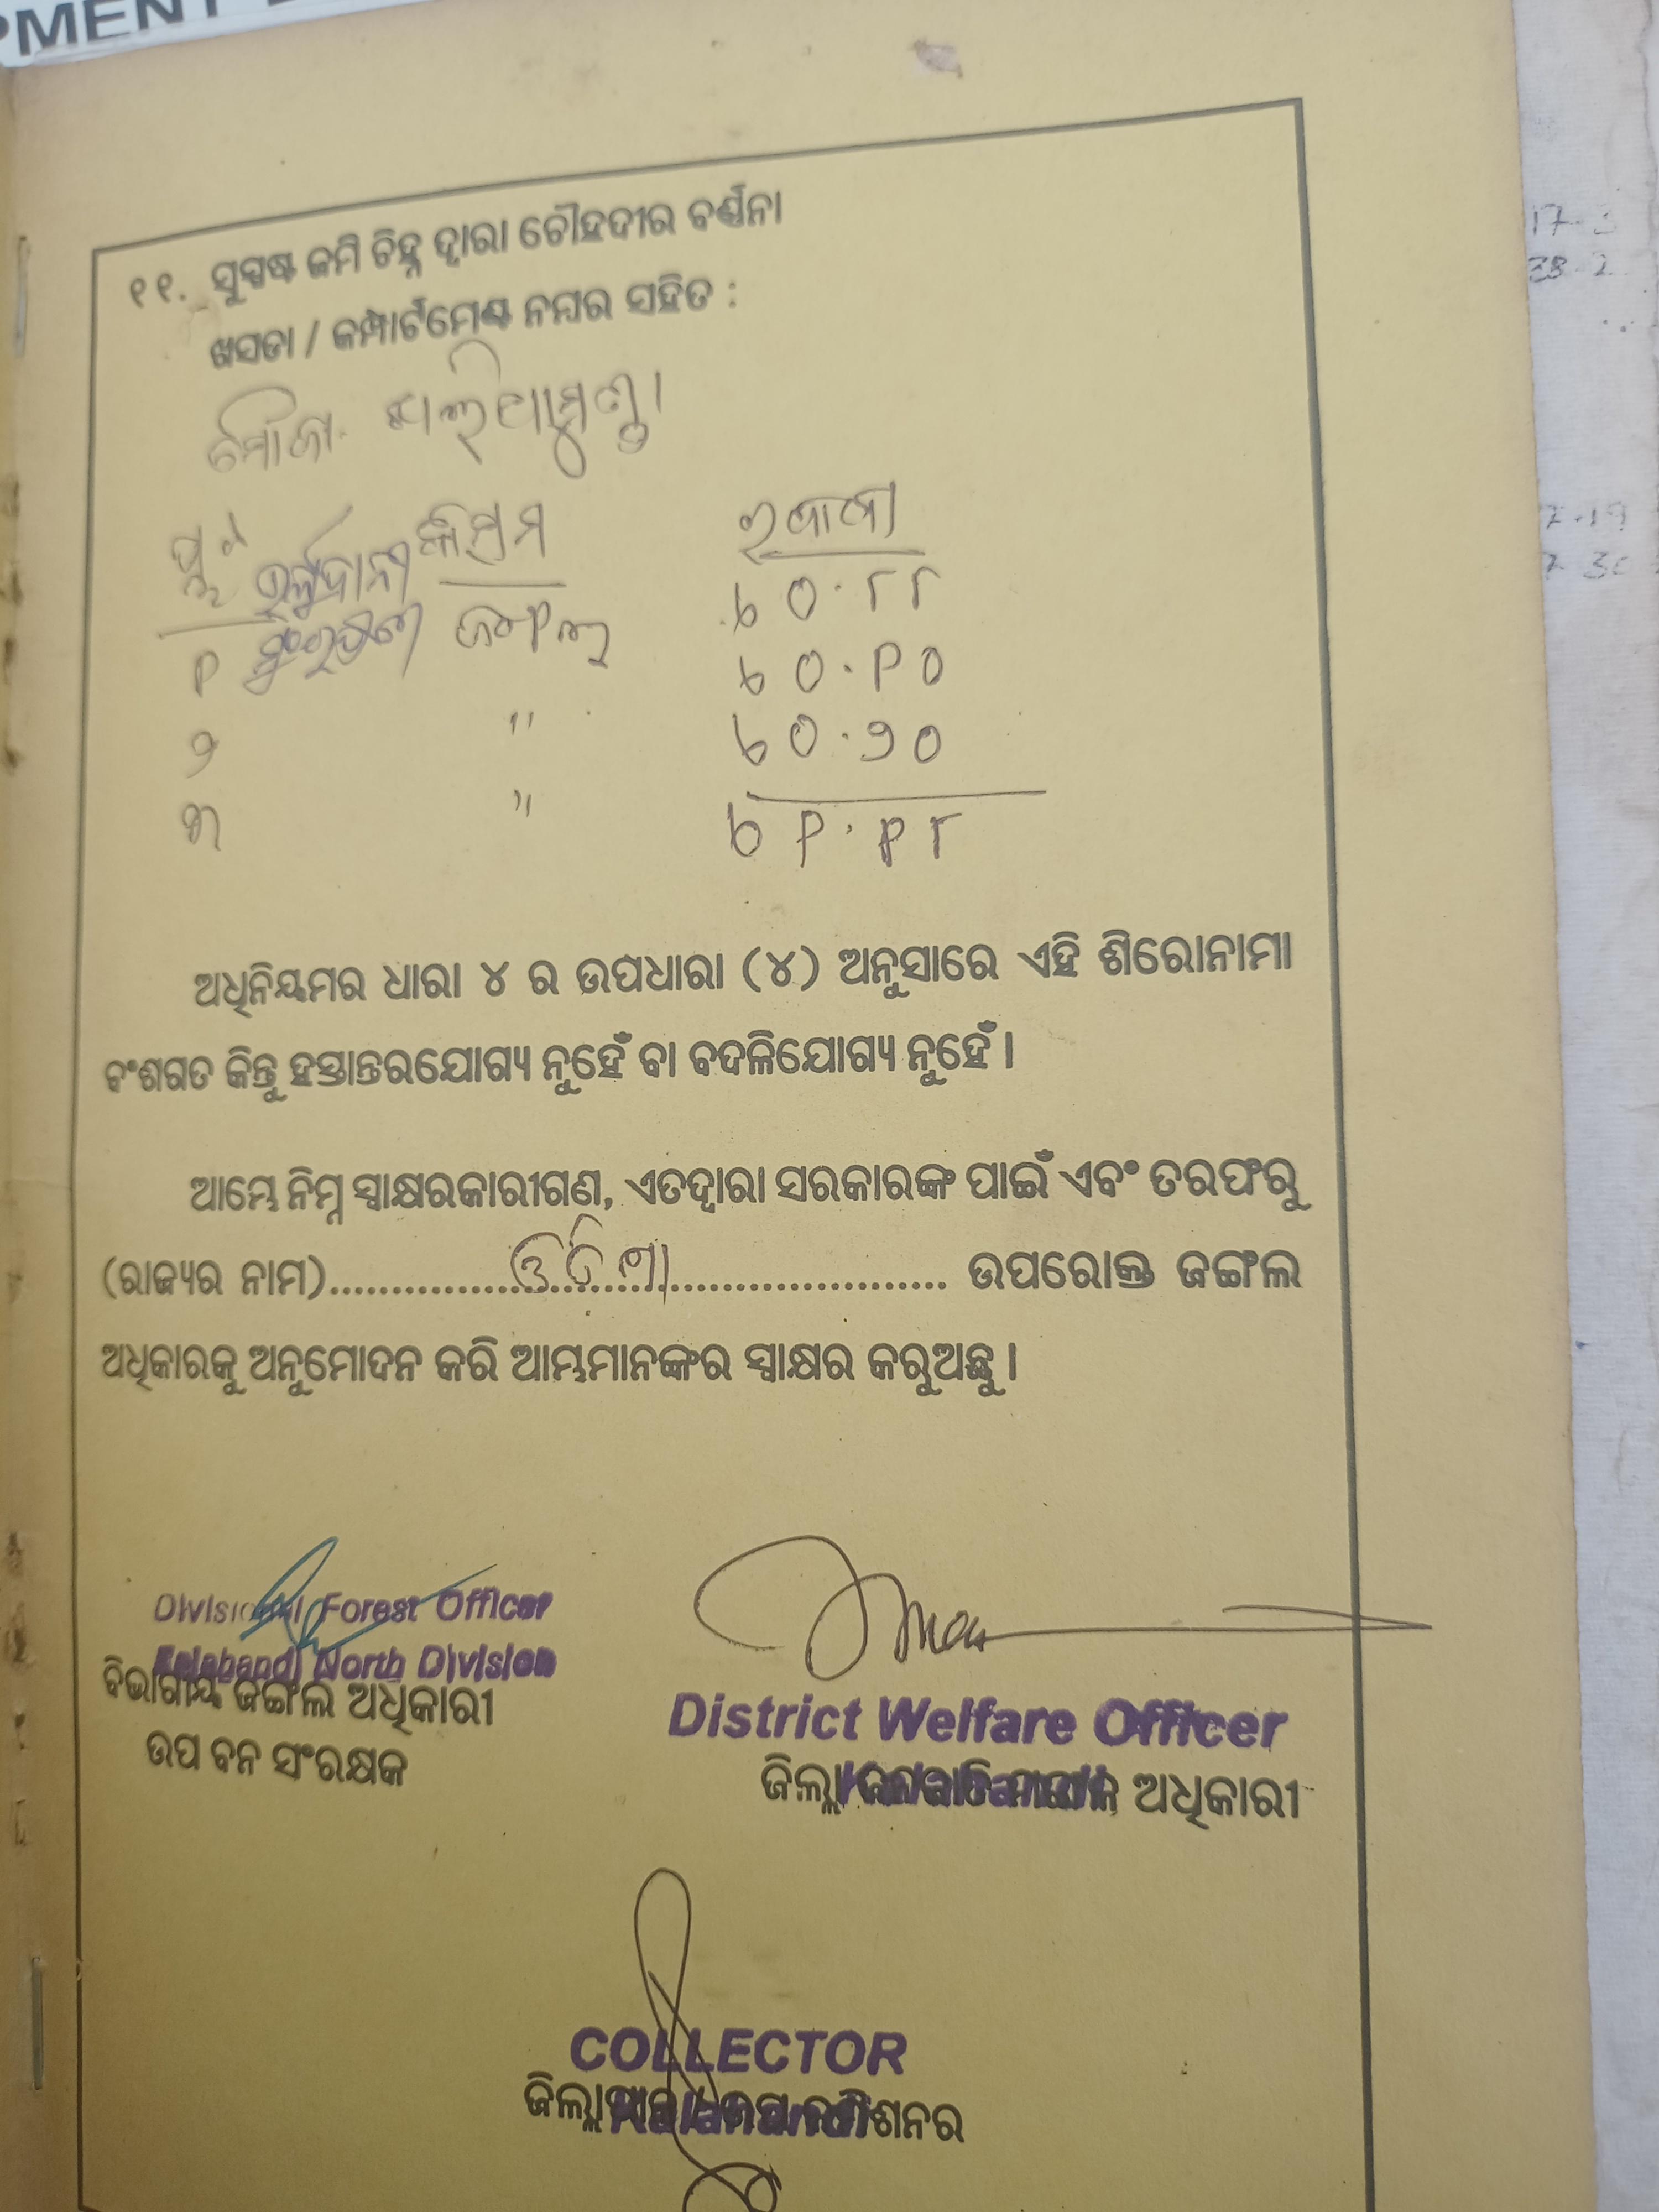 ୧୧. ସୁସ୍ପଷ୍ଟ ଜମି ଚିହ୍ନ ଦ୍ୱାରା ଚୌହଦୀର ବର୍ଣ୍ଣନା
ଖସଡା / କମ୍ପାର୍ଟମେଣ୍ଟ ନମ୍ବର ସହିତ :
ମୌଜା
ପ୍ଲଟ କିସମ
୧ ଜଙ୍ଗଲ
୨ "
୩ "
ଅଧିନିୟମର ଧାରା ୪ ର ଉପଧାରା (୪) ଅନୁସାରେ ଏହି ଶିରୋନାମା
ବଂଶଗତ କିନ୍ତୁ ହସ୍ତାନ୍ତରଯୋଗ୍ୟ ନୁହେଁ ବା ବଦଳିଯୋଗ୍ୟ ନୁହେଁ ।
ଆମ୍ଭେ ନିମ୍ନ ସ୍ୱାକ୍ଷରକାରୀଗଣ, ଏତଦ୍ୱାରା ସରକାରଙ୍କ ପାଇଁ ଏବଂ ତରଫରୁ
(ରାଜ୍ୟର ନାମ)..............ଓଡିଶା...................... ଉପରୋକ୍ତ ଜଙ୍ଗଲ
ଅଧିକାରକୁ ଅନୁମୋଦନ କରି ଆମ୍ଭମାନଙ୍କର ସ୍ୱାକ୍ଷର କରୁଅଛୁ ।
Divisional Forest Officer
Kalahandi North Division
ବିଭାଗୀୟ ଜଙ୍ଗଲ ଅଧିକାରୀ
ଉପ ବନ ସଂରକ୍ଷକ
District Welfare Officer
Kalahandi
ଜିଲ୍ଲା ଜନଜାତି ମଙ୍ଗଳ ଅଧିକାରୀ
COLLECTOR
Kalahandi